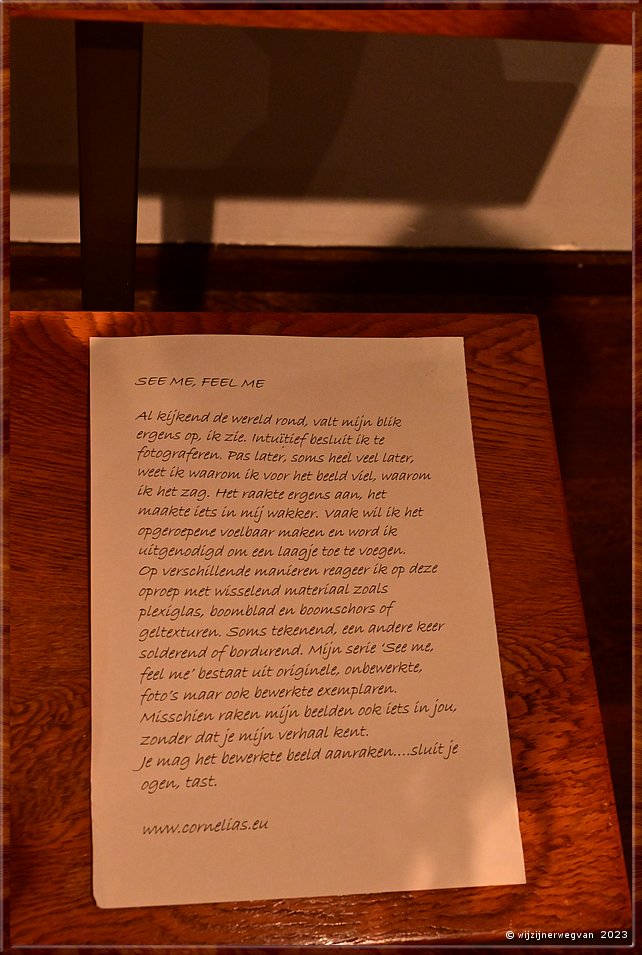 SEE ME, FEEL ME
Al kijkend de wereld rond, valt mijn blik
ergens op, ik zie. Intuïtief besluit ik te
fotograferen. Pas later, soms heel veel later,
weet ik waarom ik voor het beeld viel, waarom
ik het zag. Het raakte ergens aan, het
maakte iets in mij wakker. Vaak wil ik het
opgeroepene voelbaar maken en word ik
uitgenodigd om een laagje toe te voegen.
Op verschillende manieren reageer ik op deze
oproep met wisselend materiaal zoals
plexiglas, boomblad en boomschors of
geltexturen. Soms tekenend, een andere keer
solderend of bordurend. Mijn serie 'See me,
feel me' bestaat uit originele, onbewerkte,
foto's maar ook bewerkte exemplaren.
Misschien raken mijn beelden ook iets in jou,
zonder dat je mijn verhaal kent.
Je mag het bewerkte beeld aanraken....sluit je
ogen, tast.
www.cornelias.eu
© wijzijnerwegvan 2023